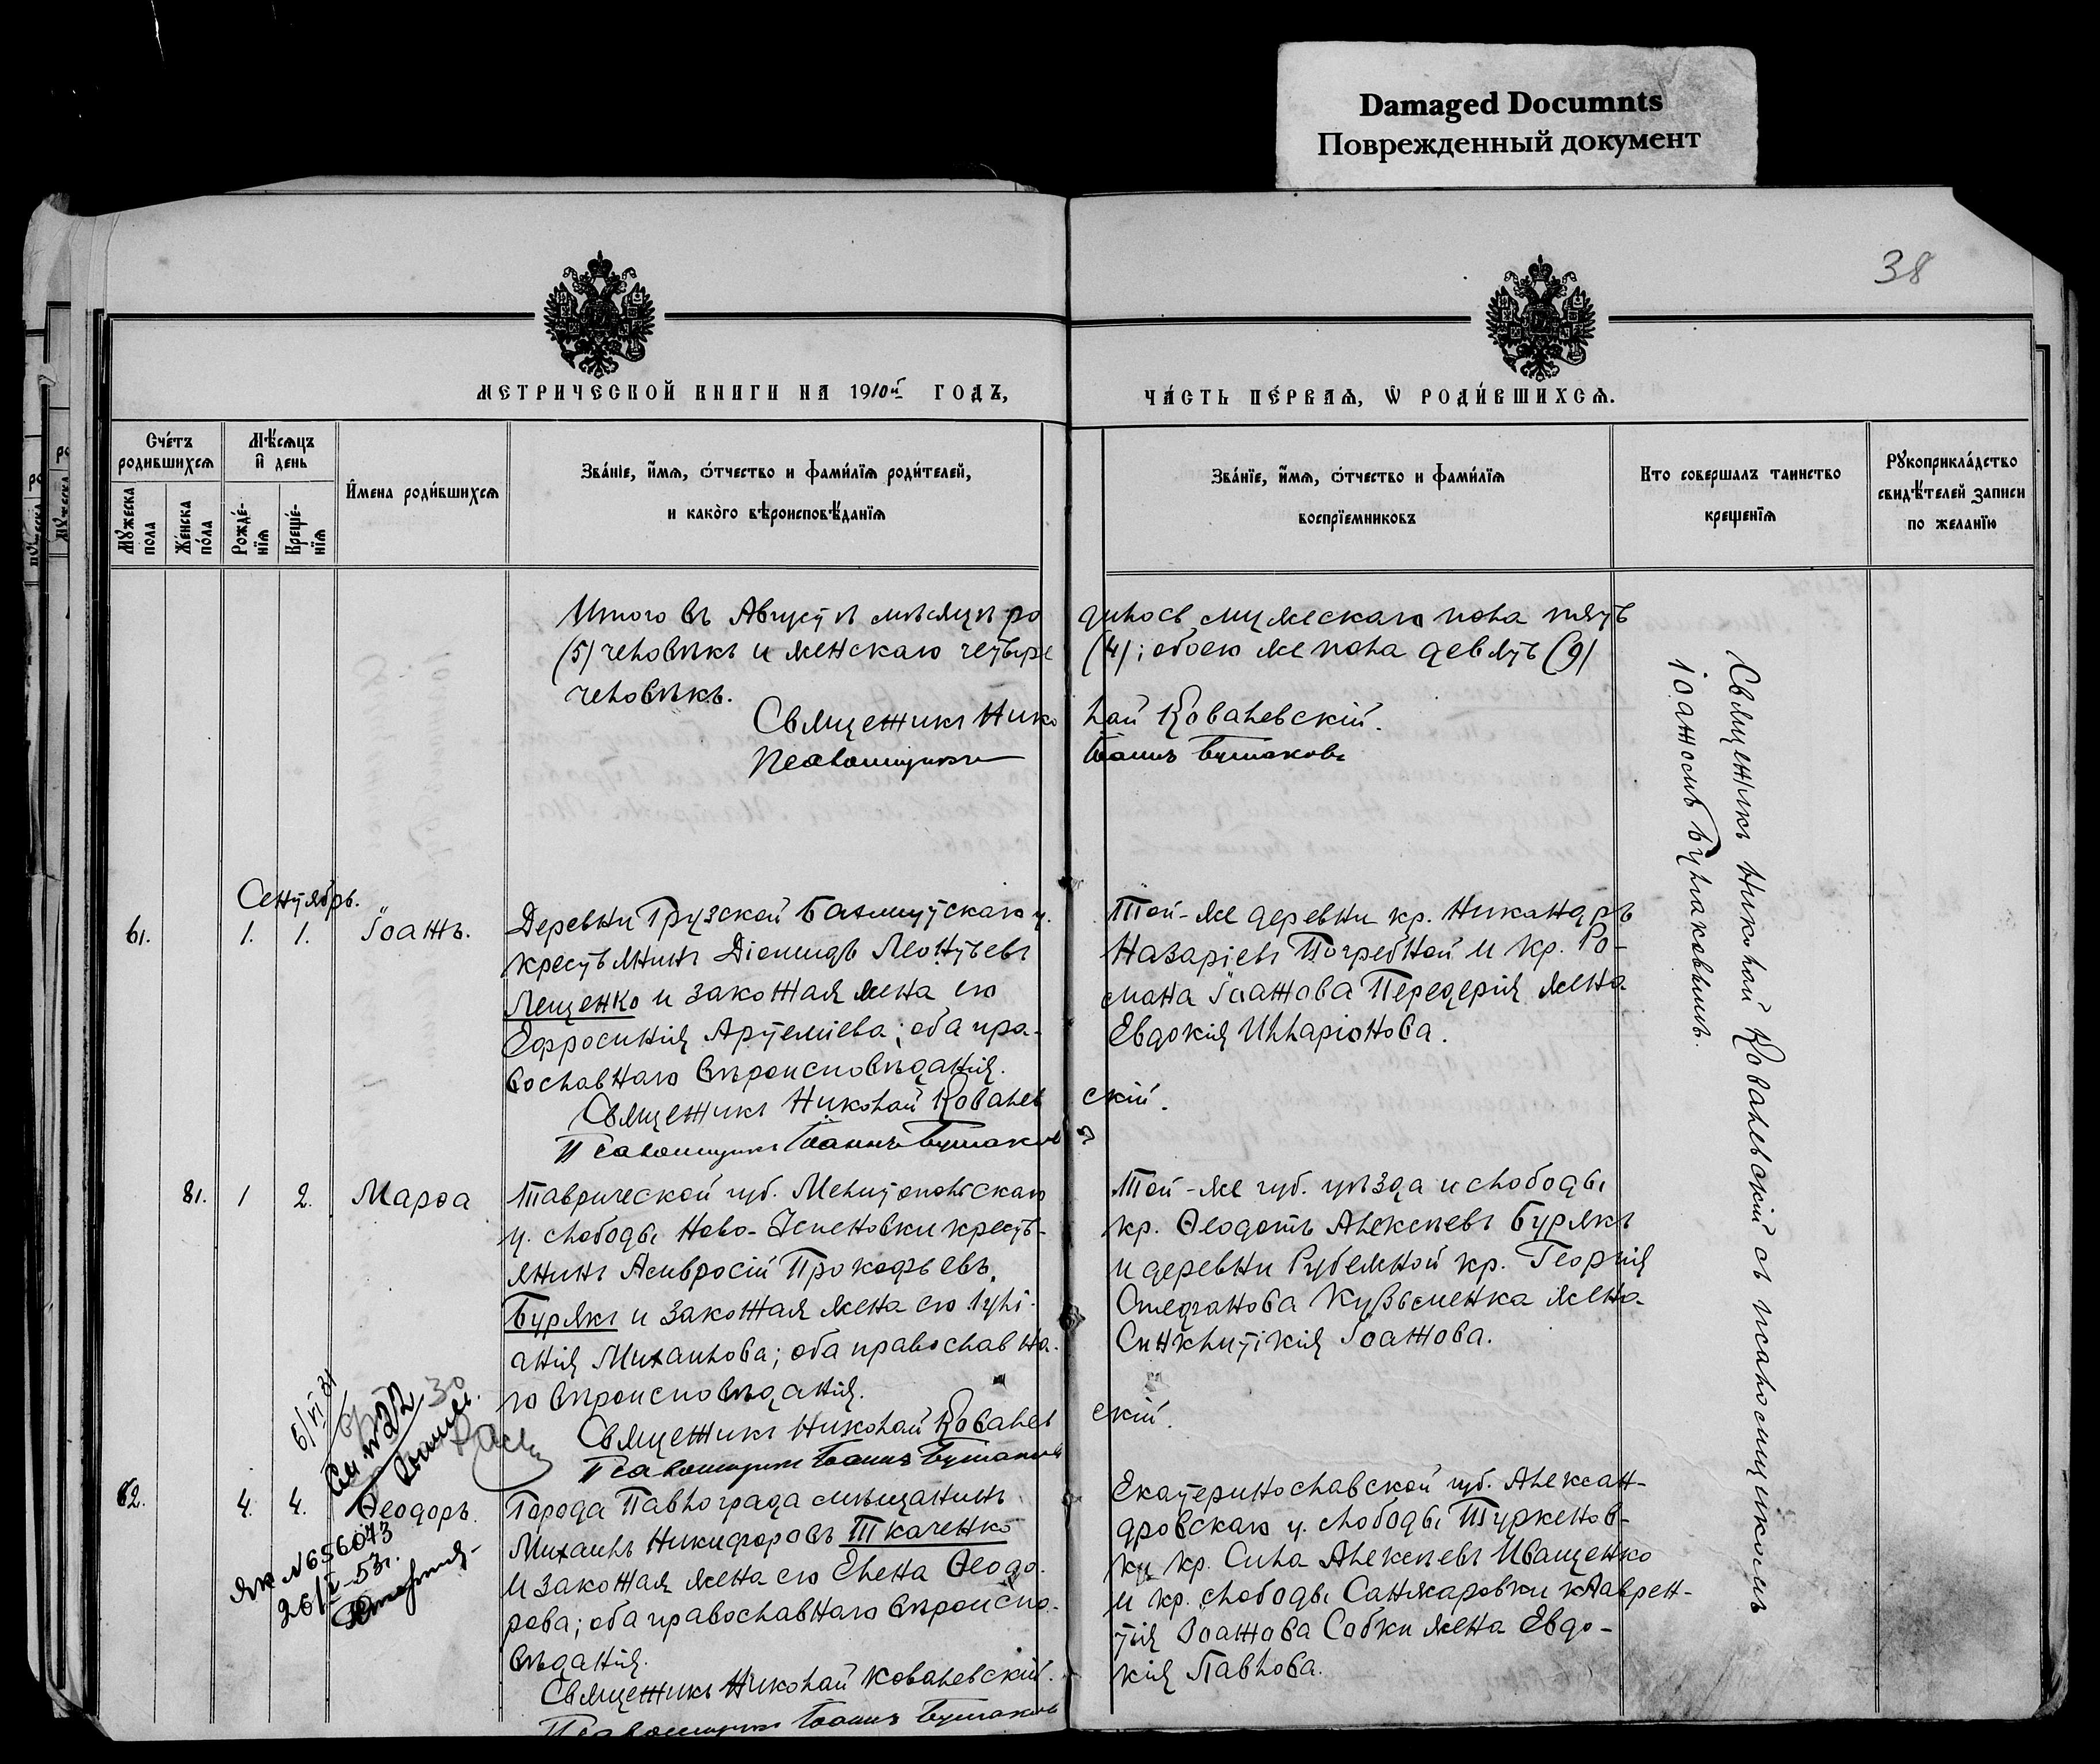 Damaged Documnts
Поврежденный документ
38
МЕТРИЧЕСКОЙ КНИГИ НА 1910й ГОДЪ,
ЧА́СТЬ ПЕ́РВАѦ, Ѡ҆ РОДИ́ВШИХСѦ.
Сче́тъ родившихсѧ
Мꙋжеска пола
Же́нска по́ла
Мѣ́сѧцъ и҆ день
Рожде́нїѧ
Креще́нїѧ
И҆мена роди́вшихсѧ
Зва́нїе, и҆́мѧ, ѻ҆́тчество и фами́лїѧ роди́телей,
и како́го вѣроисповѣ́данїѧ
Зва́нїе, и҆́мѧ, ѻ҆́тчество и фами́лїѧ
воспрїемниковъ
Кто совершалъ таинство
крещенїѧ
Рꙋкоприкла́дство
свидѣ́телей записи
по желанїю
Итого въ Августѣ мѣсяцѣ ро
(5) человѣкъ и женскаго четыре
человѣкъ.
Священникъ Нико
Псаломщикъ
дилось мужескаго пола пять
(4); обоего же пола девять (9)
лай Ковалевскій.
Іоаннъ Бушаковъ
Сентябрь.
61.
1.
1.
Іоаннъ.
Деревни Грузской Бахмутскаго у.
крестьянинъ Діомидъ Леонтьевъ
Лещенко и законная жена его
Ефросинія Артеміева; оба пра-
вославнаго вѣроисповѣданія.
Священникъ Николай Ковалев
Псаломщикъ Іоаннъ Бушаков
Той-же деревни кр. Никандръ
Назаріевъ Погребной и кр. Ро-
мана Іоаннова Передерія жена
Евдокія Илларіонова.
скій.
ъ
81.
1
2.
Марѳа
Таврической губ. Мелитопольскаго
у. слободы Ново-Успеновки кресть-
янинъ Амвросій Прокофьевъ
Бурякъ и законная жена его Іулі-
анія Михаилова; оба православна-
го вѣроисповѣданія.
Священникъ Николай Ковалев
Псаломщикъ Іоаннъ Бушаковъ
Той-же губ. уѣзда и слободы
кр. Ѳеодотъ Алексѣевъ Бурякъ
и деревни Рубежной кр. Георгія
Стефанова Кузьменка жена
Синклитикія Іоаннова.
скій.
62.
4.
4.
Ѳеодоръ.
6/VI 31
30
№ 656073
26/I-53г.
Города Павлограда мѣщанинъ
Михаилъ Никифоровъ Ткаченко
и законная жена его Елена Ѳеодо-
рова; оба православнаго вѣроиспо-
вѣданія.
Священникъ Николай Ковалевскій.
Псаломщикъ Іоаннъ Бушаковъ
Екатеринославской губ. Алексан-
дровскаго у. слободы Туркенов-
ки кр. Сила Алексѣевъ Иващенко
и кр. слободы Санжаровки Лаврен-
тія Іоаннова Собки жена Евдо-
кія Павлова.
Священникъ Николай Ковалевскій съ псаломщикомъ
Іоанномъ Бушаковымъ.